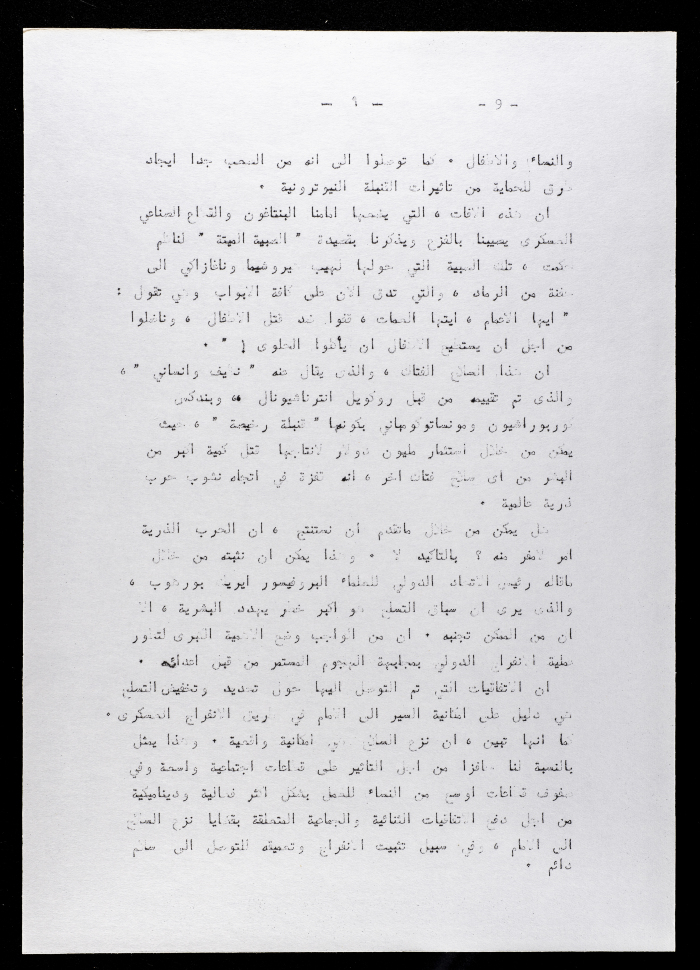 - 9 - — ٩ —
والنساء والاطفال ٠ كما توصلوا الى انه من الصعب جدا ايجاد
طرق للحماية من تاثيرات القنبلة النيوترونية ٠
ان هذه الافات ، التي يضعها امامنا البنتاغون والقطاع الصناعي
العسكرى يصيبنا بالفزع ويذكرنا بقصيدة " الصبية الميتة " لناظم
حكمت ، تلك الصبية التي حولها لهيب هيروشيما وناغازاكي الى
حفنة من الرماد ، والتي تدق الان على كافة الابواب وهي تقول :
" ايها الاعمام ، ايتها العمات ، قفوا ضد قتل الاطفال ، وناضلوا
من اجل ان يستطيع الاطفال ان يأكلوا الحلوى ! " ٠
ان هذا السلاح الفتاك ، والذى يقال عنه " نظيف وانساني " ،
والذى تم تقييمه من قبل روكويل انترناشيونال ، وبندكس
كوربوراشيون ومونساتوكومباني بكونها " قنبلة رخيصة " ، حيث
يمكن من خلال استثمار مليون دولار لانتاجها قتل كمية اكبر من
البشر من اى سلاح فتاك اخر ، انه قفزة في اتجاه نشوب حرب
ذرية عالمية ٠
هل يمكن من خلال ماتقدم ان نستنتج ، ان الحرب الذرية
امر لامفر منه ؟ بالتاكيد لا ٠ وهذا يمكن ان نثبته من خلال
ماقاله رئيس الاتحاد الدولي للعلماء البروفيسور ايريك بورهوب ،
والذى يرى ان سباق التسلح هو اكبر خطر يهدد البشرية ، الا
ان من الممكن تجنبه ٠ ان من الواجب وضع الاهمية الكبرى لتطور
عملية الانفراج الدولي بمجابهة الهجوم المستمر من قبل اعدائه ٠
ان الاتفاقيات التي تم التوصل اليها حول تحديد وتخفيض التسلح
هي دليل على امكانية السير الى الامام في طريق الانفراج العسكرى ٠
كما انها تبين ، ان نزع السلاح هي امكانية واقعية ٠ وهذا يمثل
بالنسبة لنا حافزا من اجل التاثير على قطاعات اجتماعية واسعة وفي
صفوف قطاعات اوسع من النساء للعمل بشكل اكثر فعالية وديناميكية
من اجل دفع الاتفاقيات الثنائية والجماعية المتعلقة بقضايا نزع السلاح
الى الامام ، وفي سبيل تثبيت الانفراج وتعميقه للتوصل الى سلام
دائم ٠